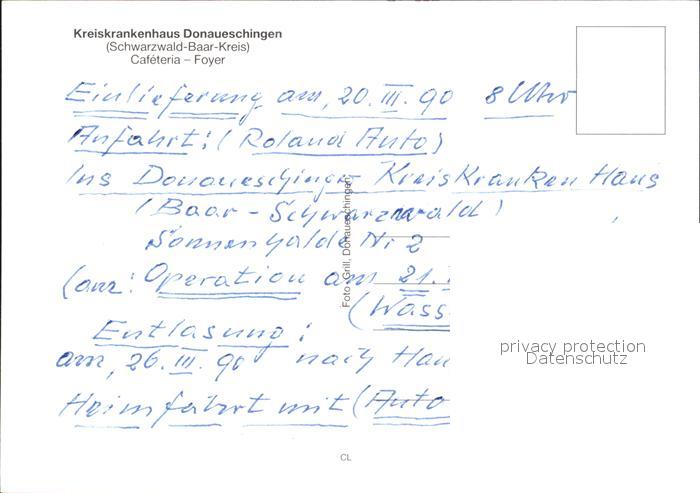 Kreiskrankenhaus Donaueschingen
(Schwarzwald-Baar-Kreis)
Caféteria – Foyer
Einlieferung am, 20. III. 90 8 Uhr
Anfahrt: (Roland Auto)
Ins Donaueschingen KreisKranken Haus
(Baar-Schwarzwald)
Sonnenhalde Nr 2
(am: Operation am 21.
(Wass
Entlasung:
am, 26. III. 90 nach Hau
Heimfahrt mit (Auto
Foto: Grill, Donaueschingen
privacy protection
Datenschutz
CL